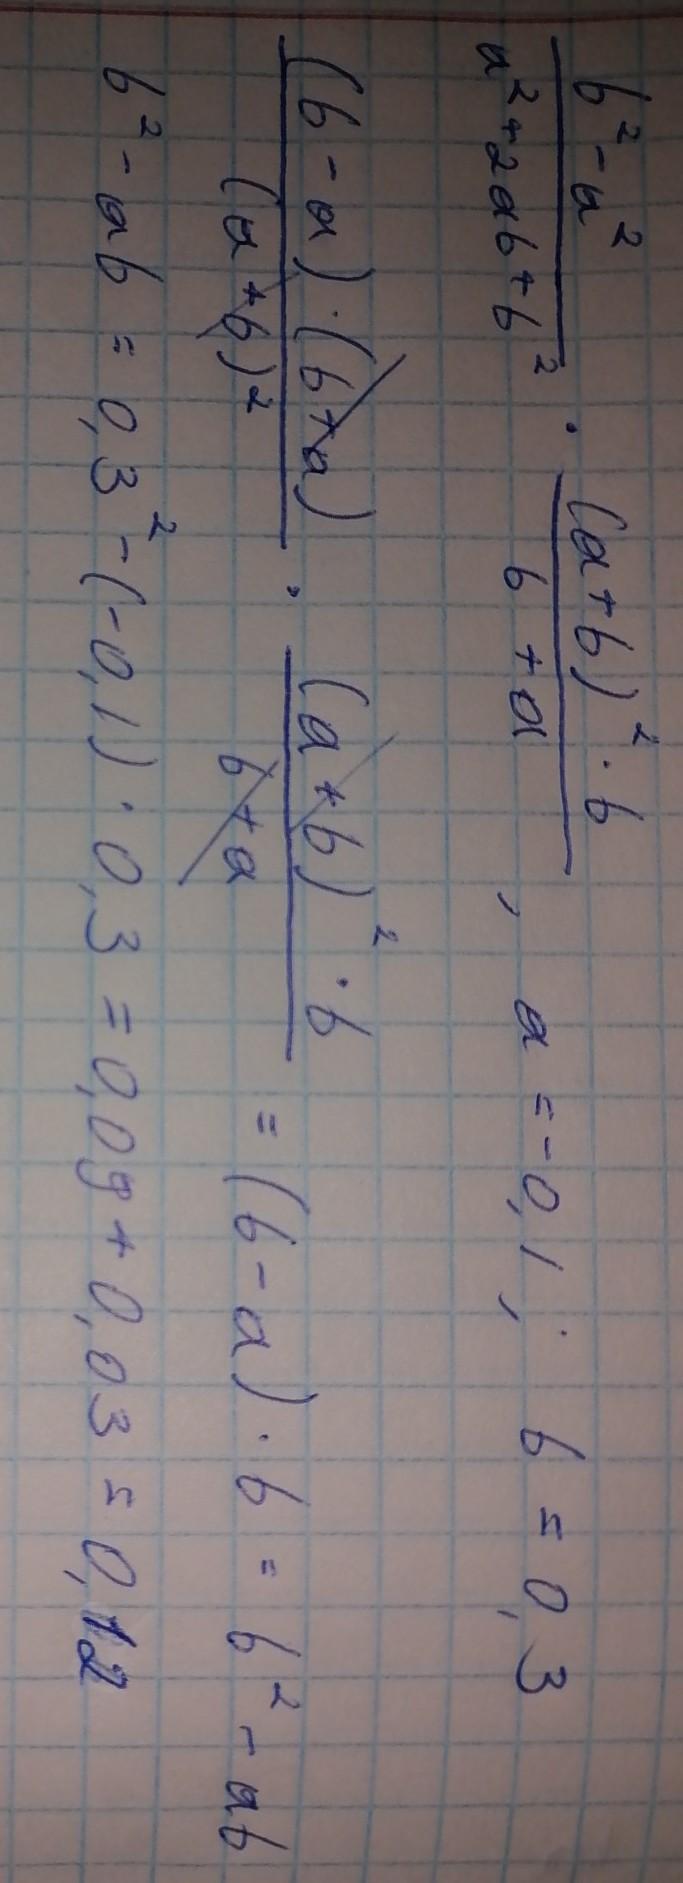 b² - a² / a² + 2ab + b² · (a + b)² · b / b + a , a = -0,1 ; b = 0,3
(b - a) · (b + a) / (a + b)² · (a + b)² · b / b + a = (b - a) · b = b² - ab
b² - ab = 0,3² - (-0,1) · 0,3 = 0,09 + 0,03 = 0,12